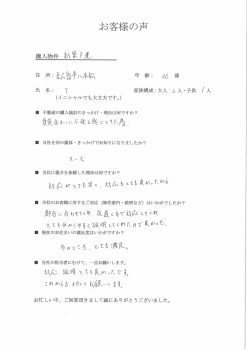 お客様の声
購入物件 新築戸建
住 所: 年 齢: 30 歳
氏 名: T 家族構成:大人 2 人・子供 1 人
(イニシャルでも大丈夫です。)
■ 不動産の購入検討のきっかけ・理由は何ですか?
賃貸住まいに不便を感じてきた為
■ 当社を何の媒体・きっかけでお知りになりましたか?
スーモ
■ 当社に媒介を依頼した理由は何ですか?
対応がとても早く、対応もとても良かったから。
■ 当社のお客様に対するご対応(物件案内・説明など)はいかがでしたか?
都合に合わせてくれ、迅速にまで対応してくれ
とても分かりやすく説明してくれたので良かった。
■ 現在のお住まいの満足度はいかがですか?
今のところ、とても満足。
■ 当社の担当者にむけて、一言お願いします。
対応、説明とても良かったです。
これからもよろしくお願いします。
お忙しい中、ご回答頂きまして誠にありがとうございました。